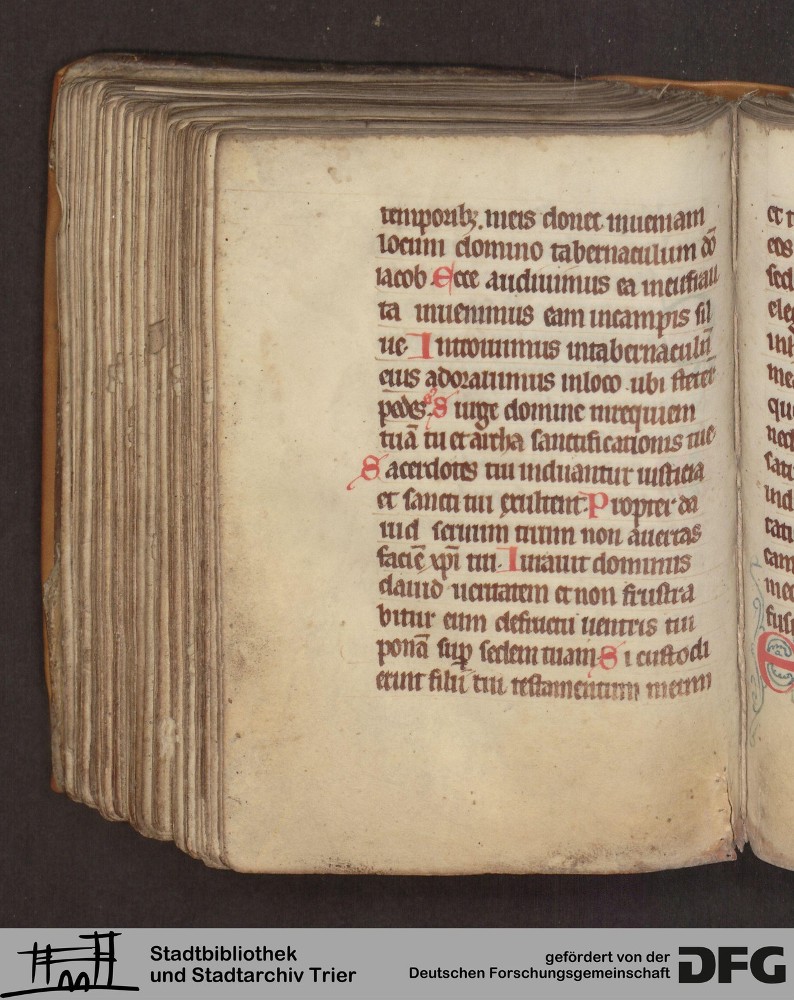 temporibꝫ. meis donec inueniam
locum domino tabernaculum dō
iacob Ecce audiuimus ea ineufrau
ta inuenimus eam incampis sil
ue. Introiuimus intabernaculū
eius adorauimus inloco .ubi steter̄
pedes ei9 Surge domine inrequiem
tuā tu et archa sanctificationis tue
Sacerdotes tui induantur iusticia
et sancti tui exultent. Propter da
uid seruum tuum non auertas
faciē xp̄i tui. Iurauit dominus
dauid ueritatem et non frustra
bitur eum defructu uentris tui
ponā sup̲ sedem tuam Si custodi
erint filii tui testamentum meum
et t
eos
sed
eleg
inh
me
qu
ned
satu
ind
catu
cam
med
fusi
E
Stadtbibliothek
und Stadtarchiv Trier
gefördert von der
Deutschen Forschungsgemeinschaft
DFG